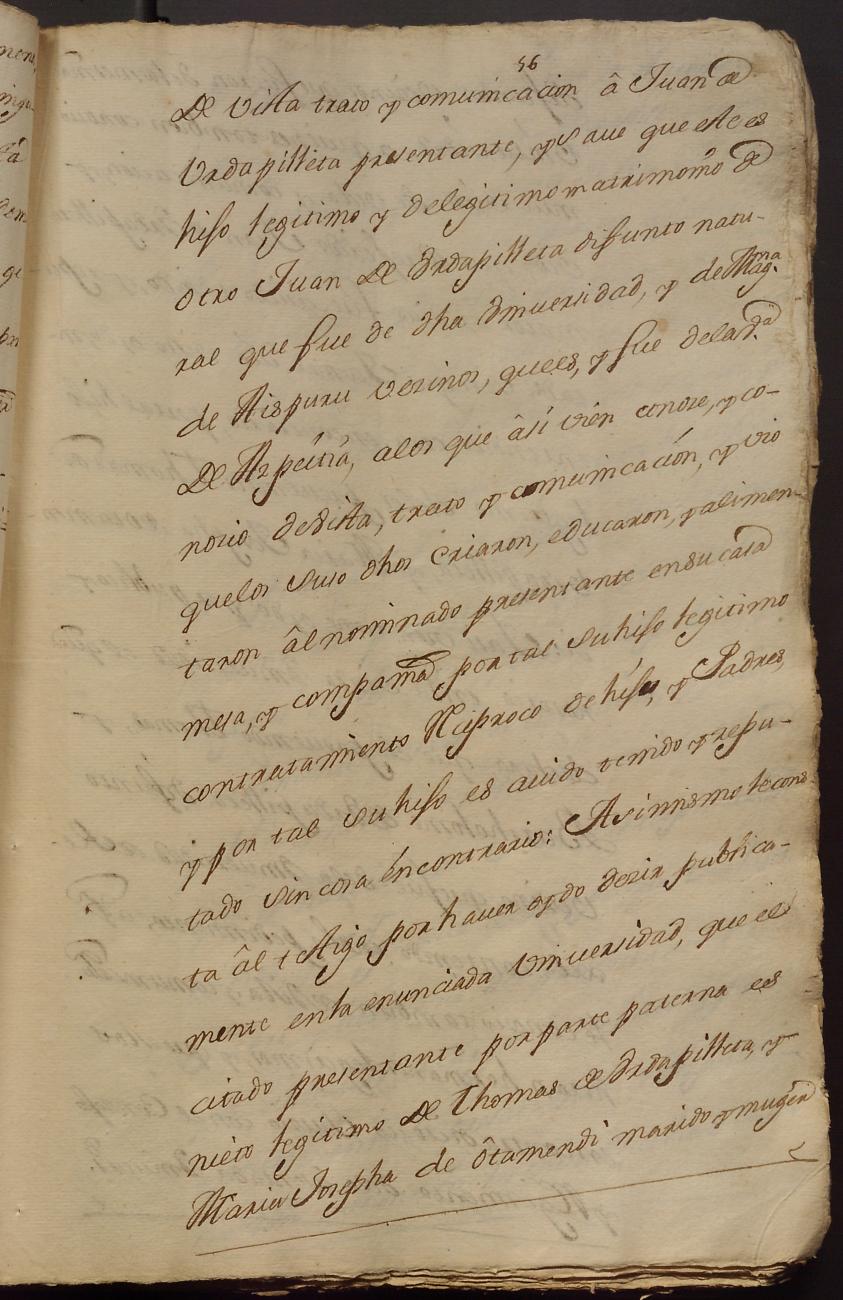 56
De vista trato y comunicacion â Juan de
Vrdapilleta presentante, y save que este es
hijo legitimo y delegitimo matrimonio de
otro Juan de Vrdapilleta difunto natu-
ral que fue de dha Vniversidad, y de Mag.na
de Aispuru vezinos, quees, y fue dela d.a
De Azpéitia, alos que âsi vien conoze, y co-
nozio devista, trato y comunicación, y vio
quelos suso dhos criaron, educaron, y alimen-
taron âl nominado presentante ensu casa
mesa, y compania por tal su hijo legitimo
contratamiento Reciproco de hijo, y Padres,
y por tal su hijo es avido tenido y repu-
tado sin cosa encontrario: Asimismo le cons-
ta âl testigo por haver oydo dezir publica-
mente enla enunciada Vniversidad, que el
citado presentante por parte paterna es
nieto legitimo de Thomas de Vrdapilleta, y
Maria Josepha de Ôtamendi marido y muger